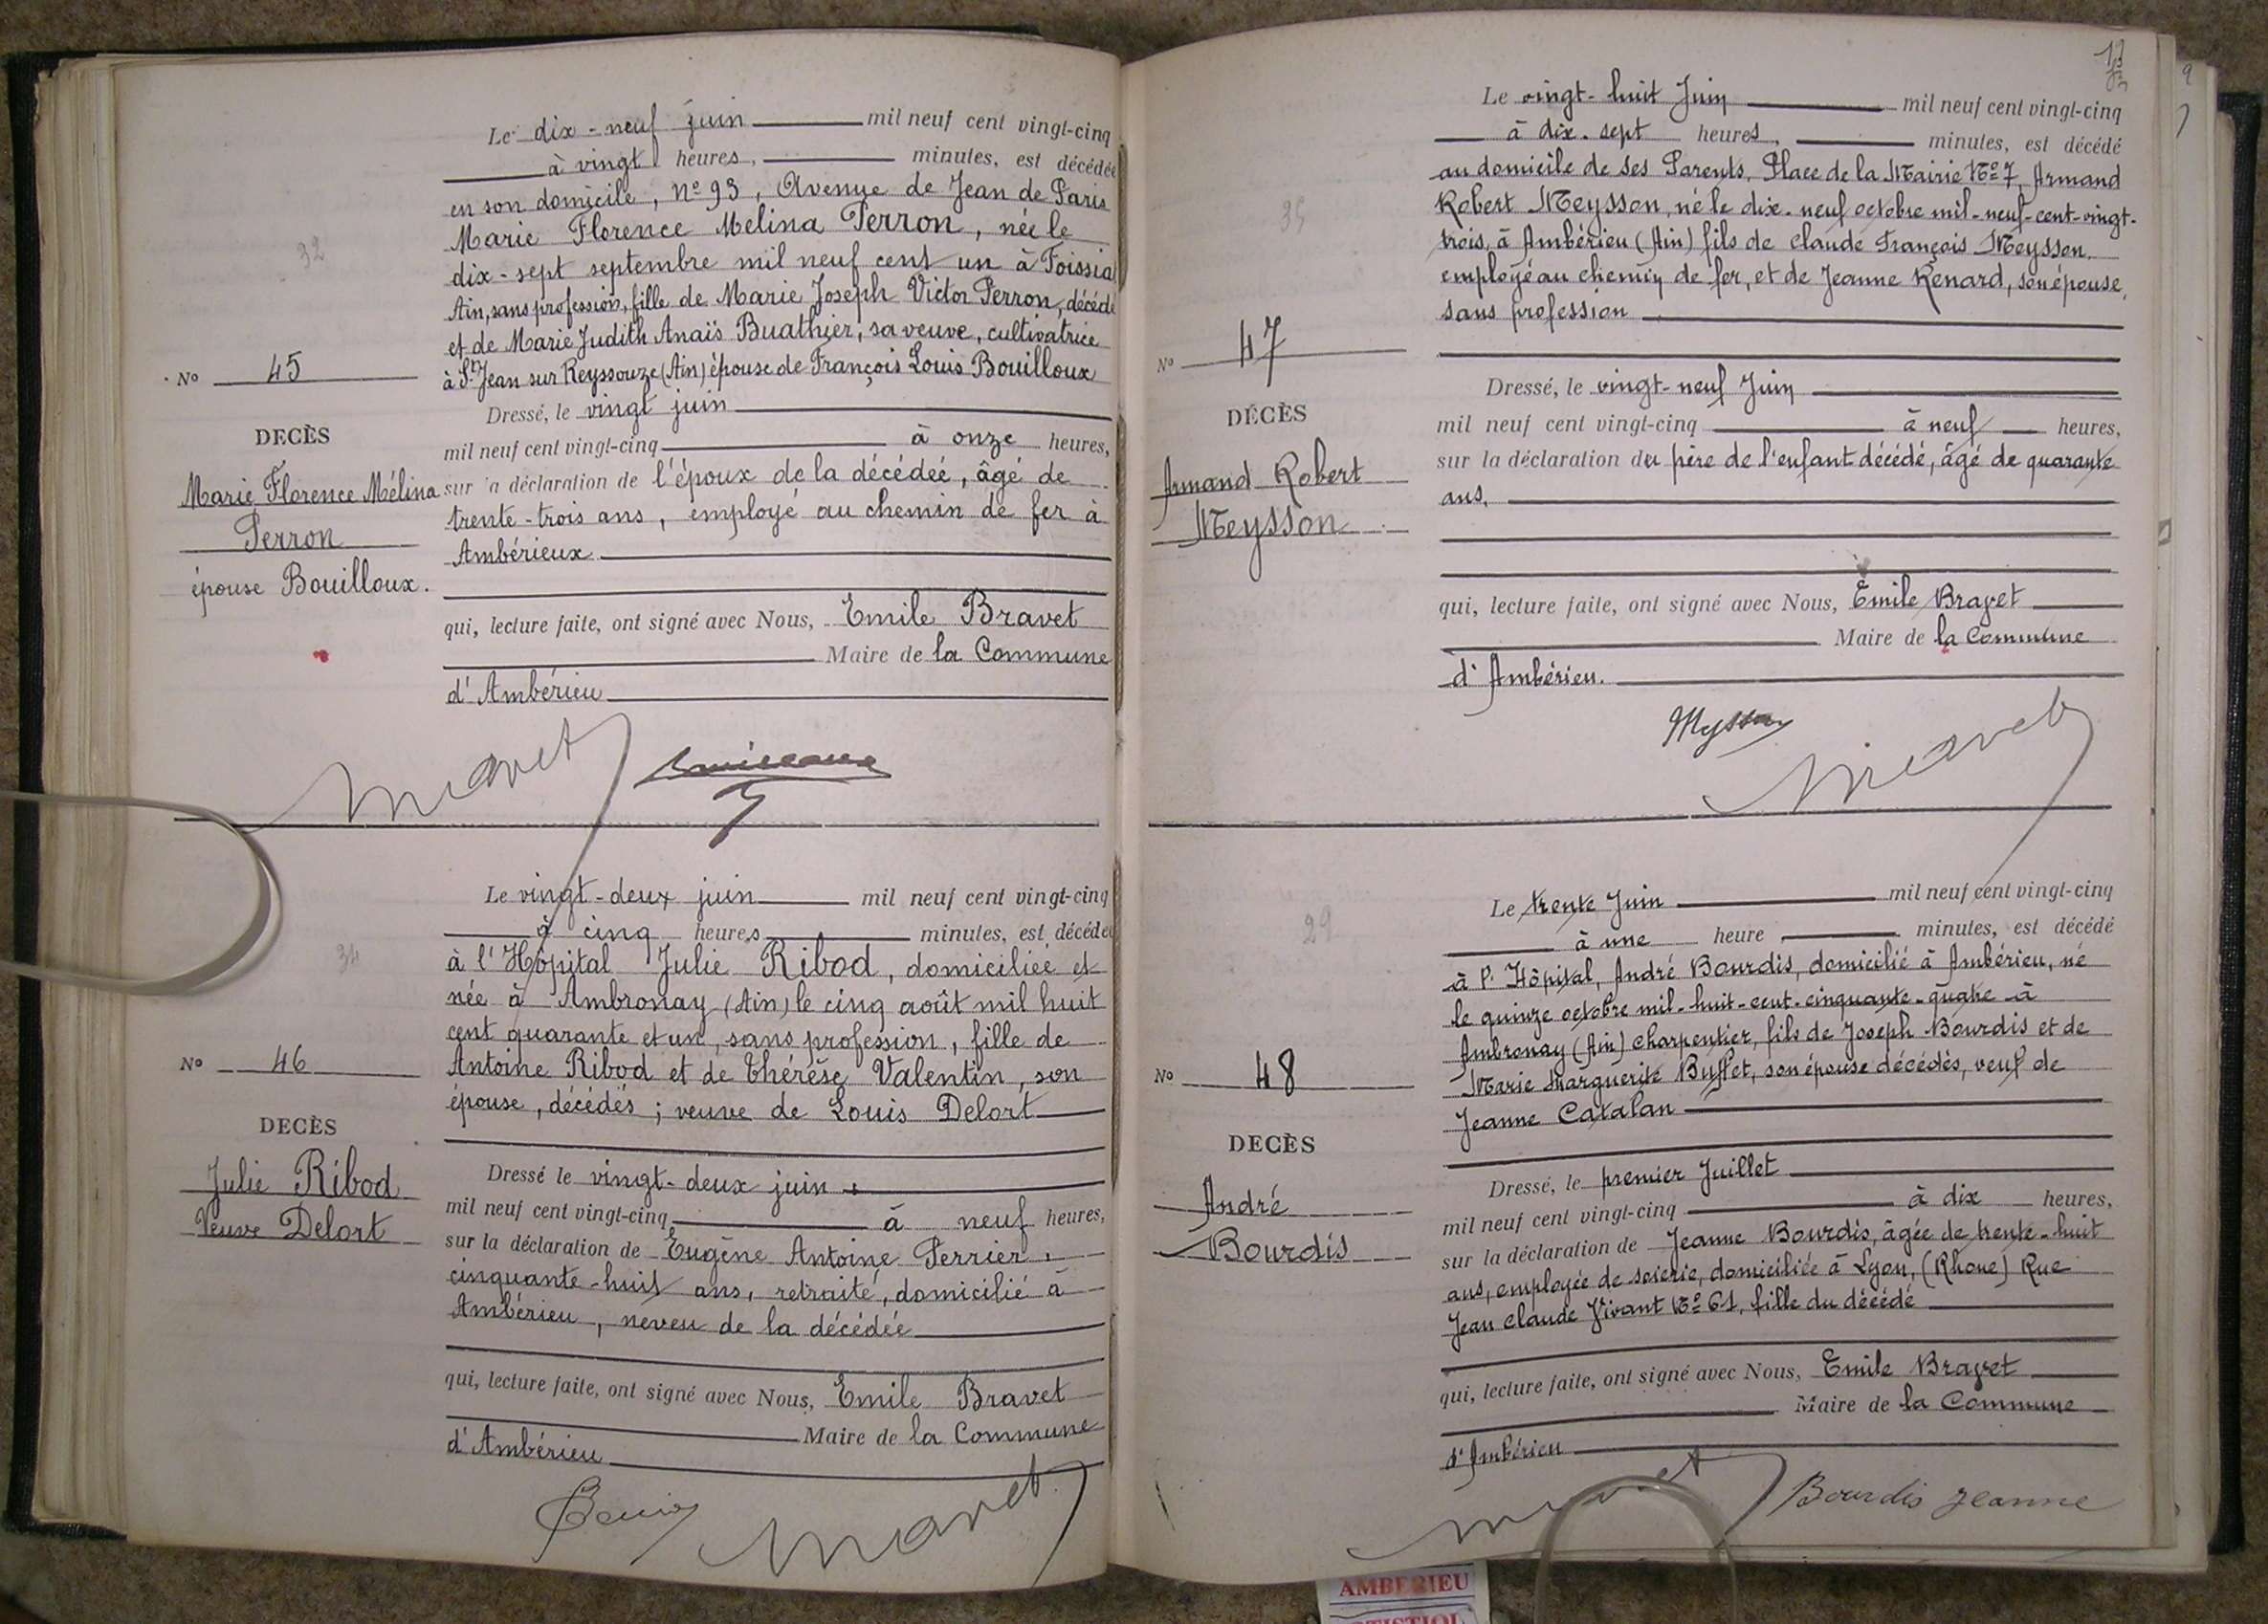 32
Le dix-neuf juin mil neuf cent vingt-cinq
à vingt heures, minutes, est décédée
en son domicile, No 93, Avenue de Jean de Paris
Marie Florence Melina Perron, née le
dix-sept septembre mil neuf cent un à Foissia
Ain, sans profession, fille de Marie Joseph Victor Perron, décédé
et de Marie Judith Anaïs Buathier, sa veuve, cultivatrice
à St Jean sur Reyssouze (Ain) épouse de François Louis Bouilloux
No 45
DECÈS
Marie Florence Mélina
Perron
épouse Bouilloux.
Dressé, le vingt juin
mil neuf cent vingt-cinq à onze heures,
sur la déclaration de l'époux de la décédeé, âgé de
trente-trois ans, employé au chemin de fer à
Ambérieux
qui, lecture faite, ont signé avec Nous, Emile Bravet
Maire de la Commune
d'Ambérieu
34
Le vingt-deux juin mil neuf cent vingt-cinq
à cinq heures minutes, est décédée
à l'Hôpital Julie Ribod, domiciliée et
née à Ambronay (Ain) le cinq août mil huit
cent quarante et un, sans profession, fille de
Antoine Ribod et de Thérèse Valentin, son
épouse, décédés ; veuve de Louis Delort
No 46
DECÈS
Julie Ribod
Veuve Delort
Dressé le vingt-deux juin
mil neuf cent vingt-cinq à neuf heures,
sur la déclaration de Eugène Antoine Perrier,
cinquante-huit ans, retraité, domicilié à
Ambérieu, neveu de la décédée
qui, lecture faite, ont signé avec Nous, Emile Bravet
Maire de la Commune
d'Ambérieu
13
35
Le vingt-huit Juin mil neuf cent vingt-cinq
à dix-sept heures, minutes, est décédé
au domicile de ses Parents, Place de la Mairie No 7, Armand
Robert Meysson, né le dix-neuf octobre mil-neuf-cent-vingt-
trois, à Ambérieu (Ain) fils de Claude François Meysson
employé au chemin de fer, et de Jeanne Renard, son épouse,
sans profession
No 47
DÉCÈS
Armand Robert
Meysson
Dressé, le vingt-neuf Juin
mil neuf cent vingt-cinq à neuf heures,
sur la déclaration du père de l'enfant décédé, âgé de quarante
ans,
qui, lecture faite, ont signé avec Nous, Emile Bravet
Maire de la Commune
d'Ambérieu.
Meysson
29
Le trente Juin mil neuf cent vingt-cinq
à une heure minutes, est décédé
à l'Hôpital, André Bourdis, domicilié à Ambérieu, né
le quinze octobre mil-huit-cent-cinquante-quatre à
Ambronay (Ain) charpentier, fils de Joseph Bourdis et de
Marie Marguerite Buffet, son épouse décédés, veuf de
Jeanne Catalan
No 48
DECÈS
André
Bourdis
Dressé, le premier Juillet
mil neuf cent vingt-cinq à dix heures,
sur la déclaration de Jeanne Bourdis, âgée de trente-huit
ans, employée de soierie, domiciliée à Lyon, (Rhone) Rue
Jean Claude Vivant No 61, fille du décédé
qui, lecture faite, ont signé avec Nous, Emile Bravet
Maire de la Commune
d'Ambérieu
Bourdis Jeanne
AMBERIEU